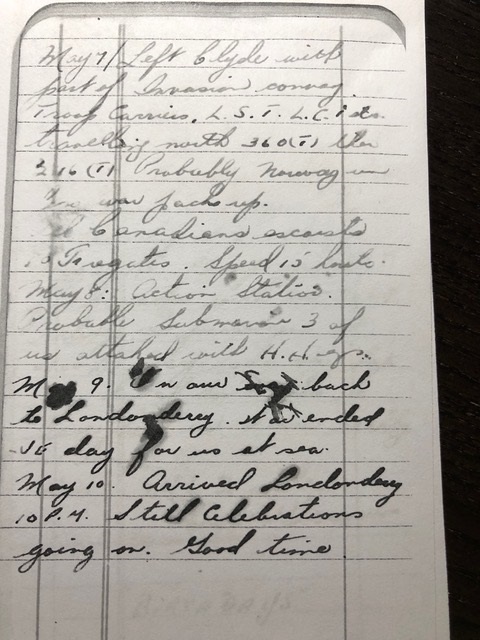 May 7/ Left Clyde with
part of Invasion convoy.
Troop Carriers, L.S.T. L.C.I etc.
travelling north 360(T) then
216 (T) Probably Norway
war pack up.
Canadians escorts
Frigates. Speed 15 knots.
May 8: Action Station.
Probable Submarine 3 of
us attacked with H.H.
M 9. On our back
to Londonderry. War ended
VE day for us at sea.
May 10. Arrived Londonderry
10 P.M. Still Celebrations
going on. Good time
BIRTHDAYS